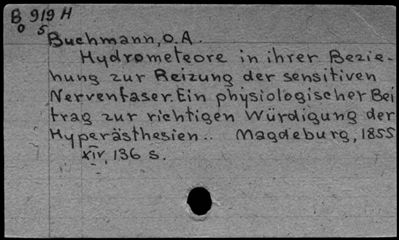 B 919 H
o 5
Buchmann, O.A.
Hydrometeore in ihrer Bezie-
hung zur Reizung der sensitiven
Nervenfaser. Ein physiologischer Bei
trag zur richtigen Würdigung der
Hyperästhesien.. Magdeburg, 1855
XIV, 136 s.